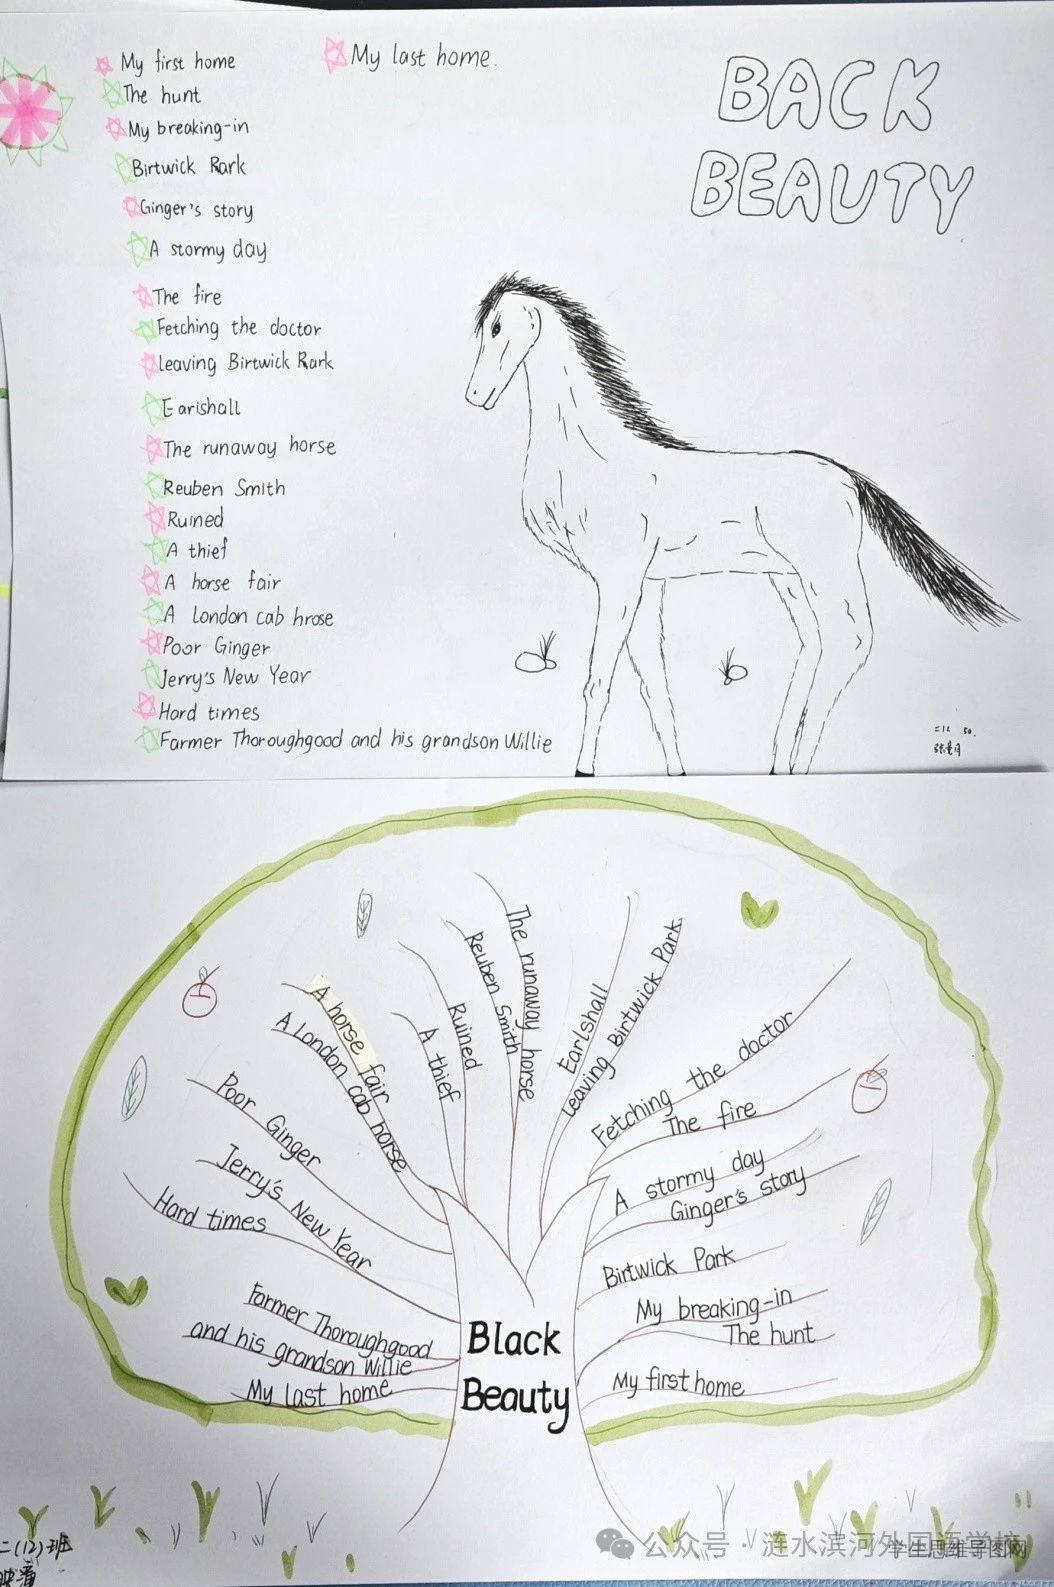 My first home
The hunt
My breaking-in
Birtwick Rark
Ginger's story
A stormy day
The fire
Fetching the doctor
Leaving Birtwick Rark
Earishall
The runaway horse
Reuben Smith
Ruined
A thief
A horse fair
A London cab hrose
Poor Ginger
Jerry's New Year
Hard times
Farmer Thoroughgood and his grandson Willie
My last home.
BACK
BEAUTY
The runaway horse
Reuben Smith
Ruined
A thief
A horse fair
A London cab horse
Poor Ginger
Jerry's New Year
Hard times
Farmer Thoroughgood
and his grandson Willie
My last home
Earlshall
Leaving Birtwick Park
Fetching the doctor
The fire
A stormy day
Ginger's story
Birtwick Park
My breaking-in
The hunt
My first home
Black
Beauty
二(12)班
公众号·涟水滨河外国语学校
学生思维导图网